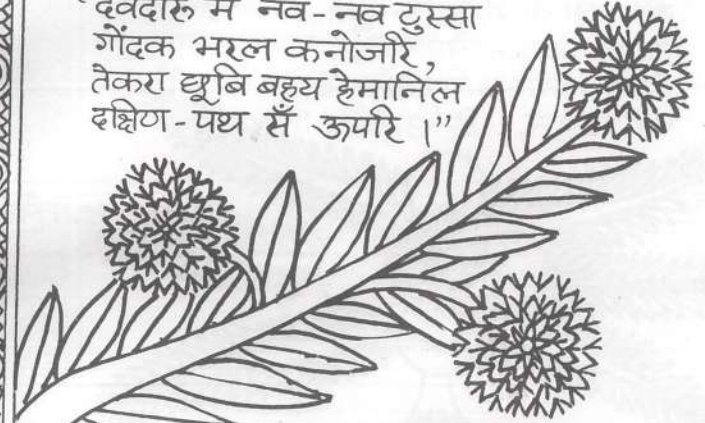 देवदारु मे नव-नव टुस्सा
गोंदक भरल कनोजरि,
तेकरा छूबि बहय हेमानिल
दक्षिण-पथ सँ ऊपरि ।”